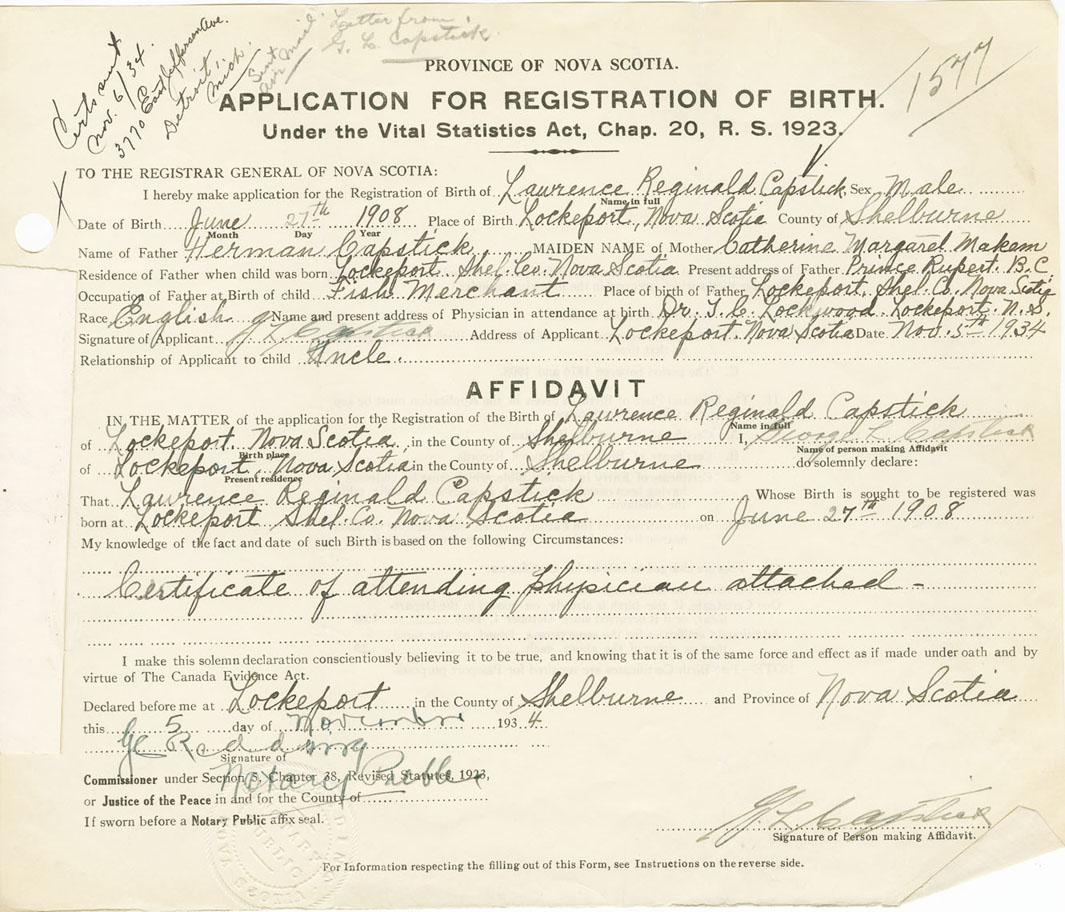 Certs sent
Nov. 6/34.
3770 East Jefferson Ave.
Detroit,
Mich.
Sent
Air Mail
Letter from
G. L. Capstick.
1577
PROVINCE OF NOVA SCOTIA.
APPLICATION FOR REGISTRATION OF BIRTH.
Under the Vital Statistics Act, Chap. 20, R. S. 1923.
X
TO THE REGISTRAR GENERAL OF NOVA SCOTIA:
I hereby make application for the Registration of Birth of Lawrence Reginald Capstick Sex Male
Name in full
Date of Birth June 27th 1908 Place of Birth Lockeport, Nova Scotia County of Shelburne
Month Day Year
Name of Father Herman Capstick MAIDEN NAME of Mother Catherine Margaret Makem
Residence of Father when child was born Lockeport Shel. Co. Nova Scotia Present address of Father Prince Rupert. B.C.
Occupation of Father at Birth of child Fish Merchant Place of birth of Father Lockeport. Shel. Co. Nova Scotia
Race English Name and present address of Physician in attendance at birth Dr. Lockwood. Lockeport. N.S.
Signature of Applicant G L Capstick Address of Applicant Lockeport. Nova Scotia Date Nov. 5th 1934
Relationship of Applicant to child Uncle.
AFFIDAVIT
IN THE MATTER of the application for the Registration of the Birth of Lawrence Reginald Capstick
Name in full
of Lockeport. Nova Scotia. in the County of Shelburne I, George L Capstick
Birth place Name of person making Affidavit
of Lockeport, Nova Scotia in the County of Shelburne do solemnly declare:
Present residence
That Lawrence Reginald Capstick Whose Birth is sought to be registered was
born at Lockeport Shel. Co. Nova Scotia on June 27th 1908
My knowledge of the fact and date of such Birth is based on the following Circumstances:
Certificate of attending physician attached -
I make this solemn declaration conscientiously believing it to be true, and knowing that it is of the same force and effect as if made under oath and by
virtue of The Canada Evidence Act.
Declared before me at Lockeport in the County of Shelburne and Province of Nova Scotia
this 5 day of November 1934
Signature of
Commissioner under Section 5, Chapter 38, Revised Statutes, 1923,
Notary Public
or Justice of the Peace in and for the County of
If sworn before a Notary Public affix seal.
G L Capstick
Signature of Person making Affidavit.
For Information respecting the filling out of this Form, see Instructions on the reverse side.